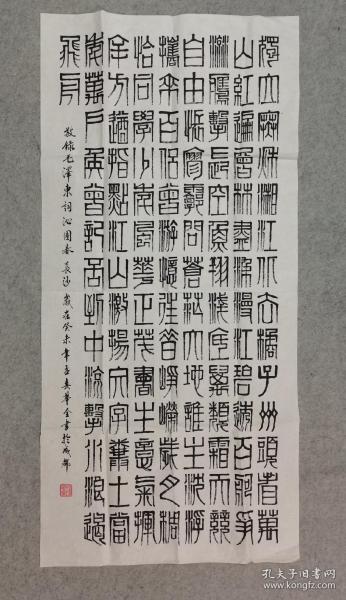 獨立寒秋湘江北去橘子州頭看萬
山紅遍層林盡染漫江碧透百舸爭
流鷹擊長空魚翔淺底萬類霜天競
自由悵寥廓問蒼茫大地誰主沈浮
攜來百侶曾游憶往昔崢嶸歲月稠
恰同學少年風華正茂書生意氣揮
斥方遒指點江山激揚文字糞土當
年萬戶侯曾記否到中流擊水浪遏
飛舟
敬錄毛澤東詞沁園春長沙歲在癸未年孟
書於成都
孔夫子旧书网